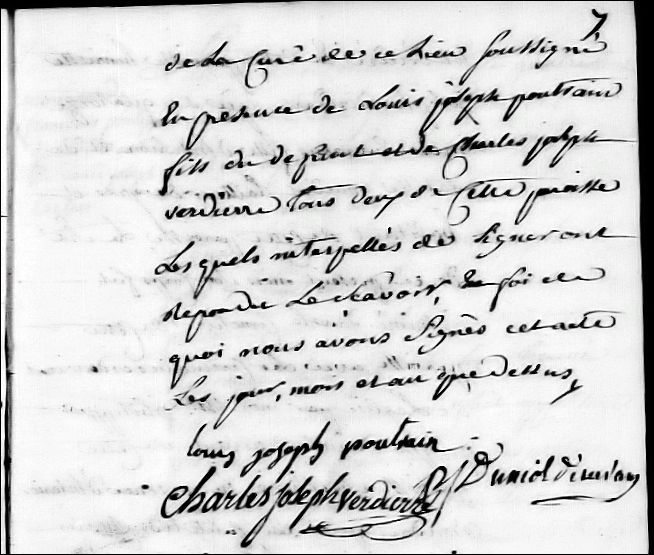 7
de La Cure de ce Lieu soussigné
En presence de Louis joseph poutrain
fils du defunt et de Charles joseph
verdierre tous deux de Cette paroisse
Lesquels interpellés de signer ont
repondu Le scavoir, En foi de
quoi nous avons signés cet acte
Les jour, mois et an que dessus,
louis joseph poutrain
Charles joseph verdierre